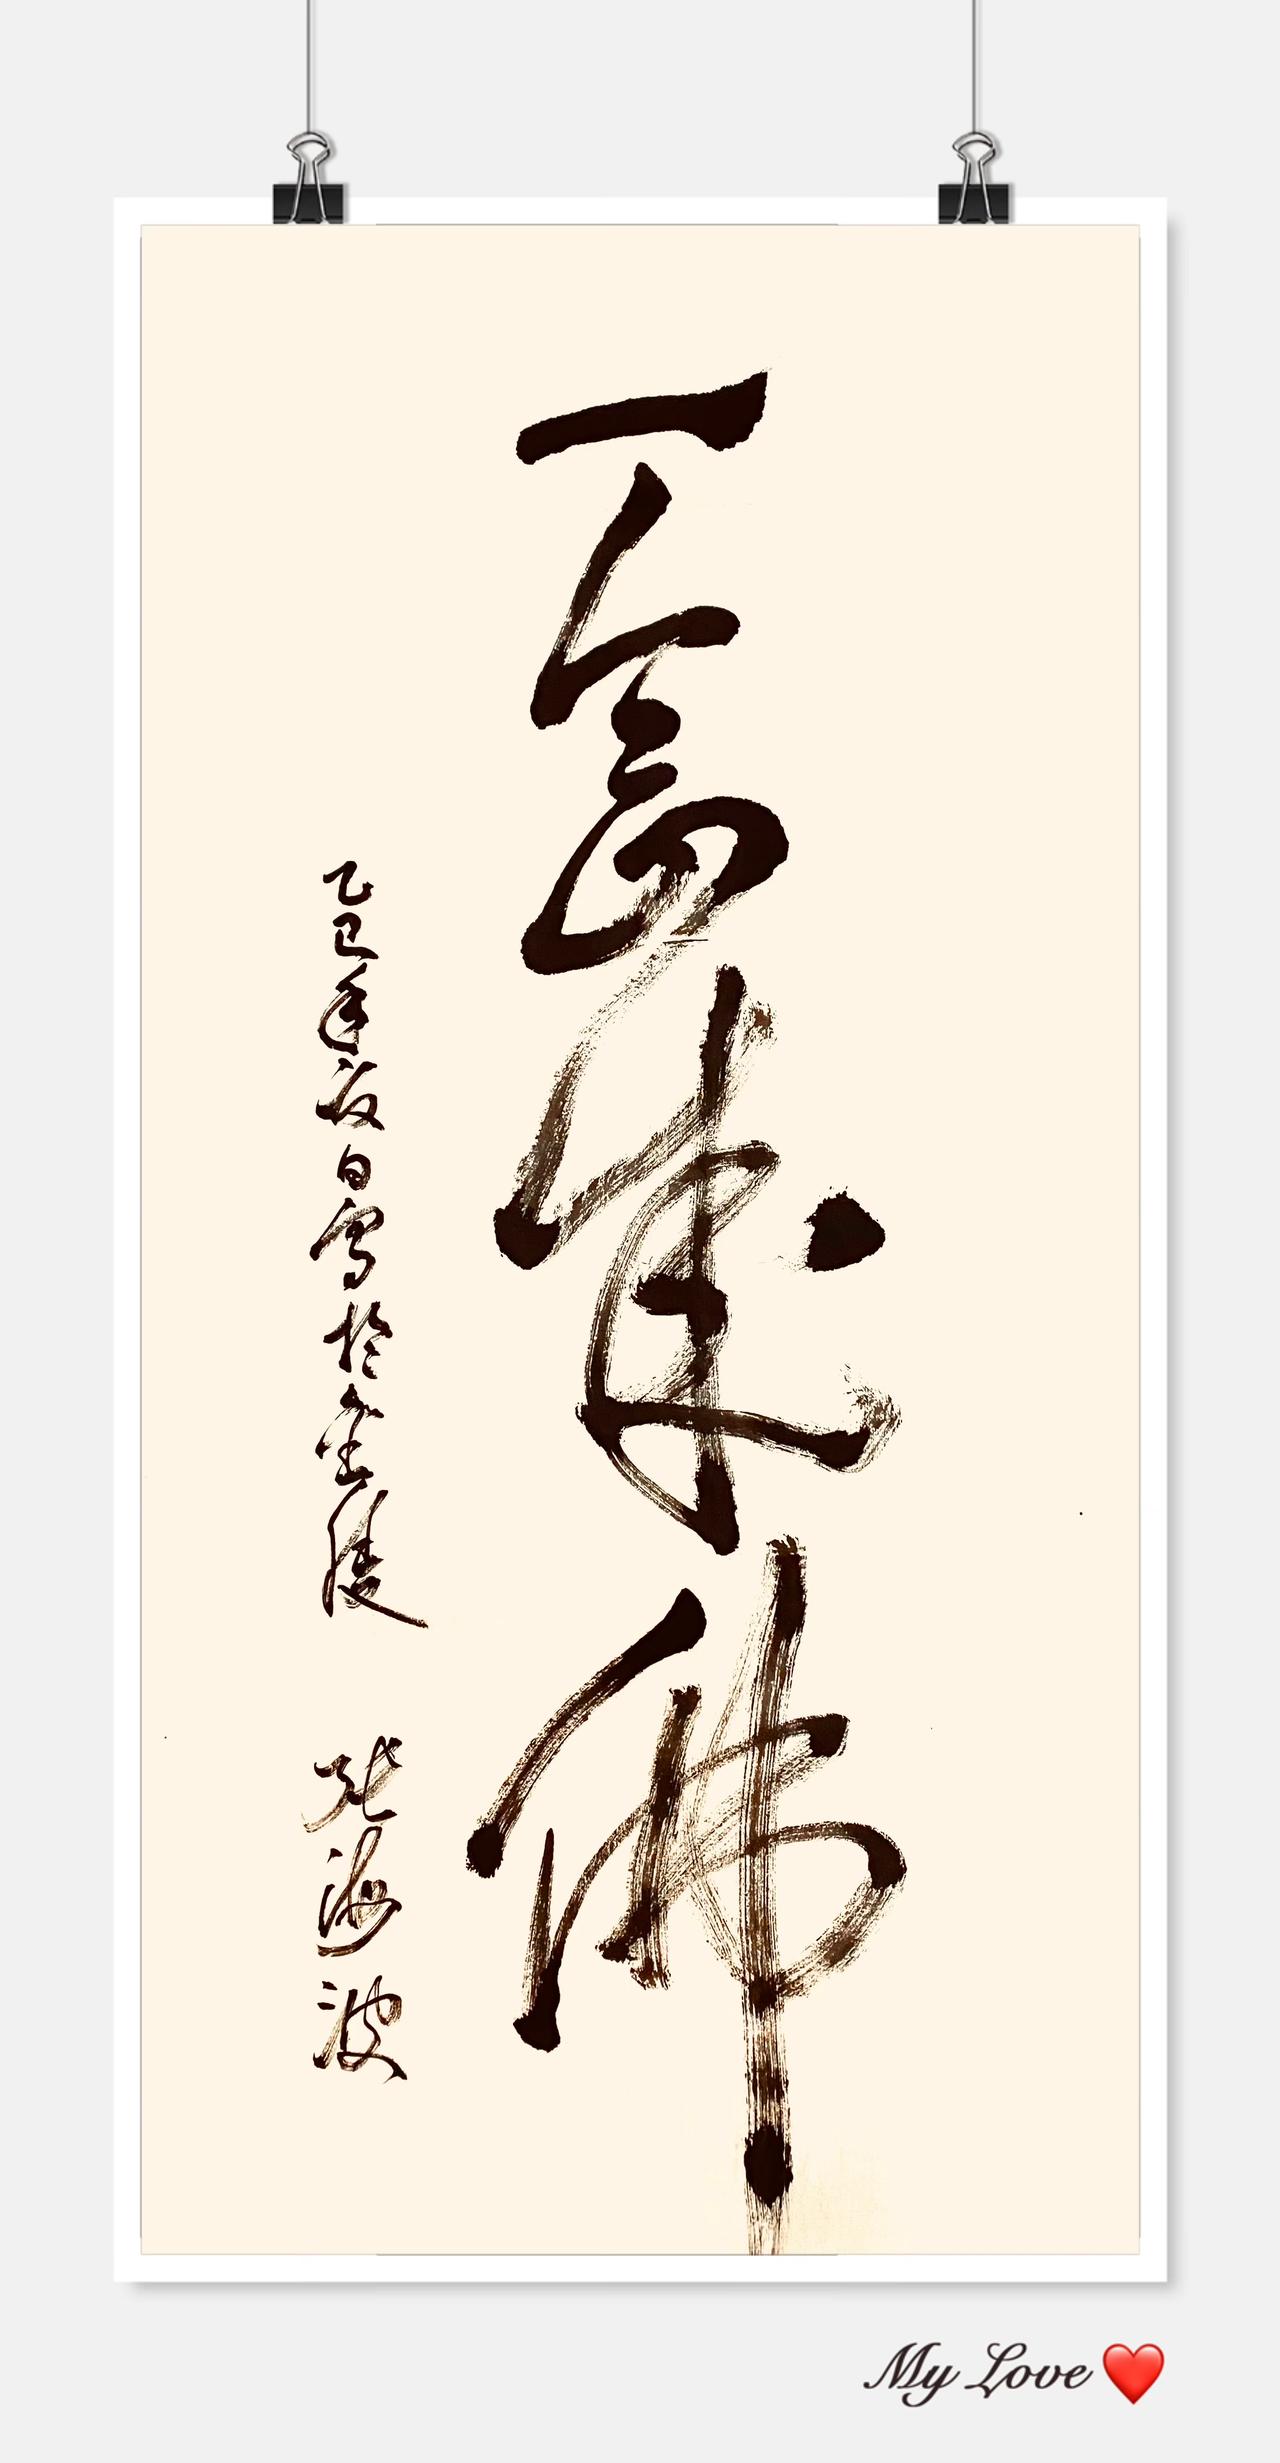 一念成佛
乙巳年初白写於金陵
张海波
My Love ❤️